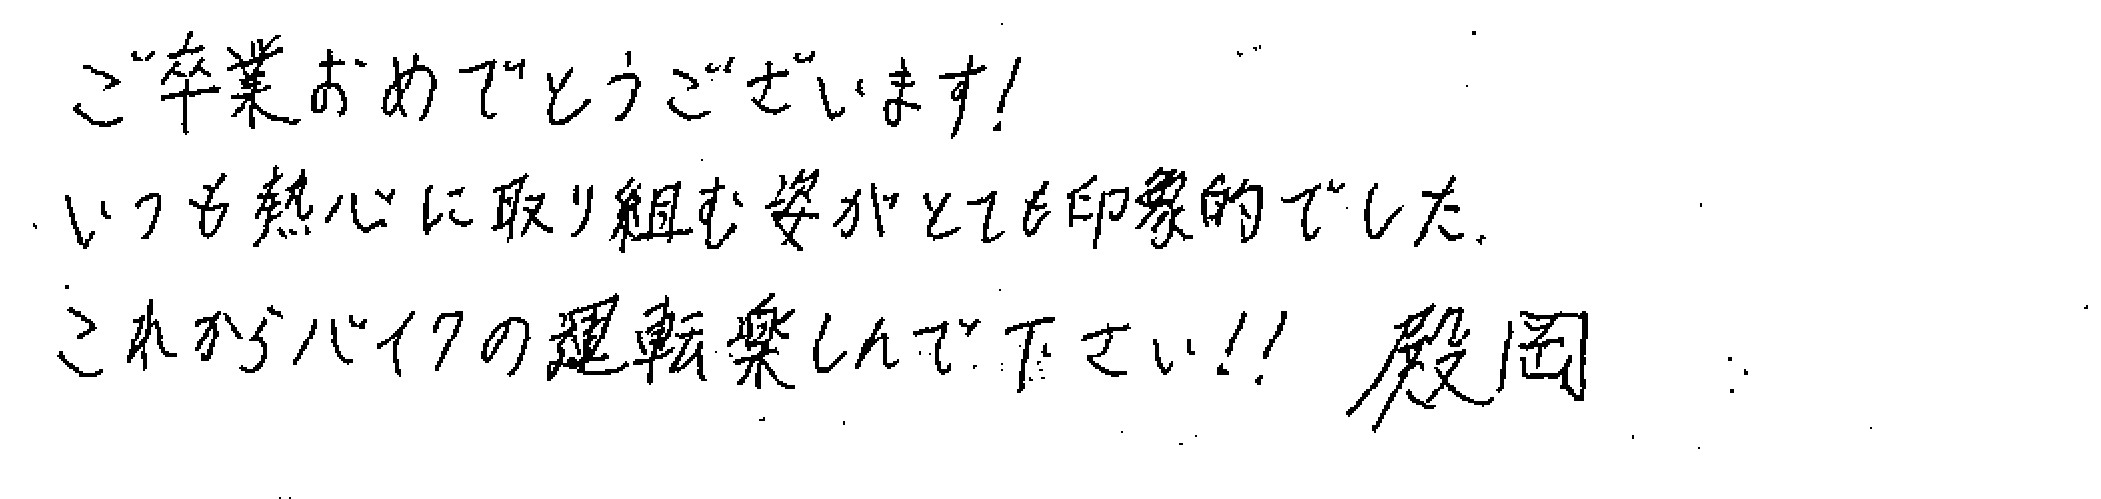 ご卒業おめでとうございます!
いつも熱心に取り組む姿がとても印象的でした.
これからバイクの運転楽しんで下さい!! 殿岡